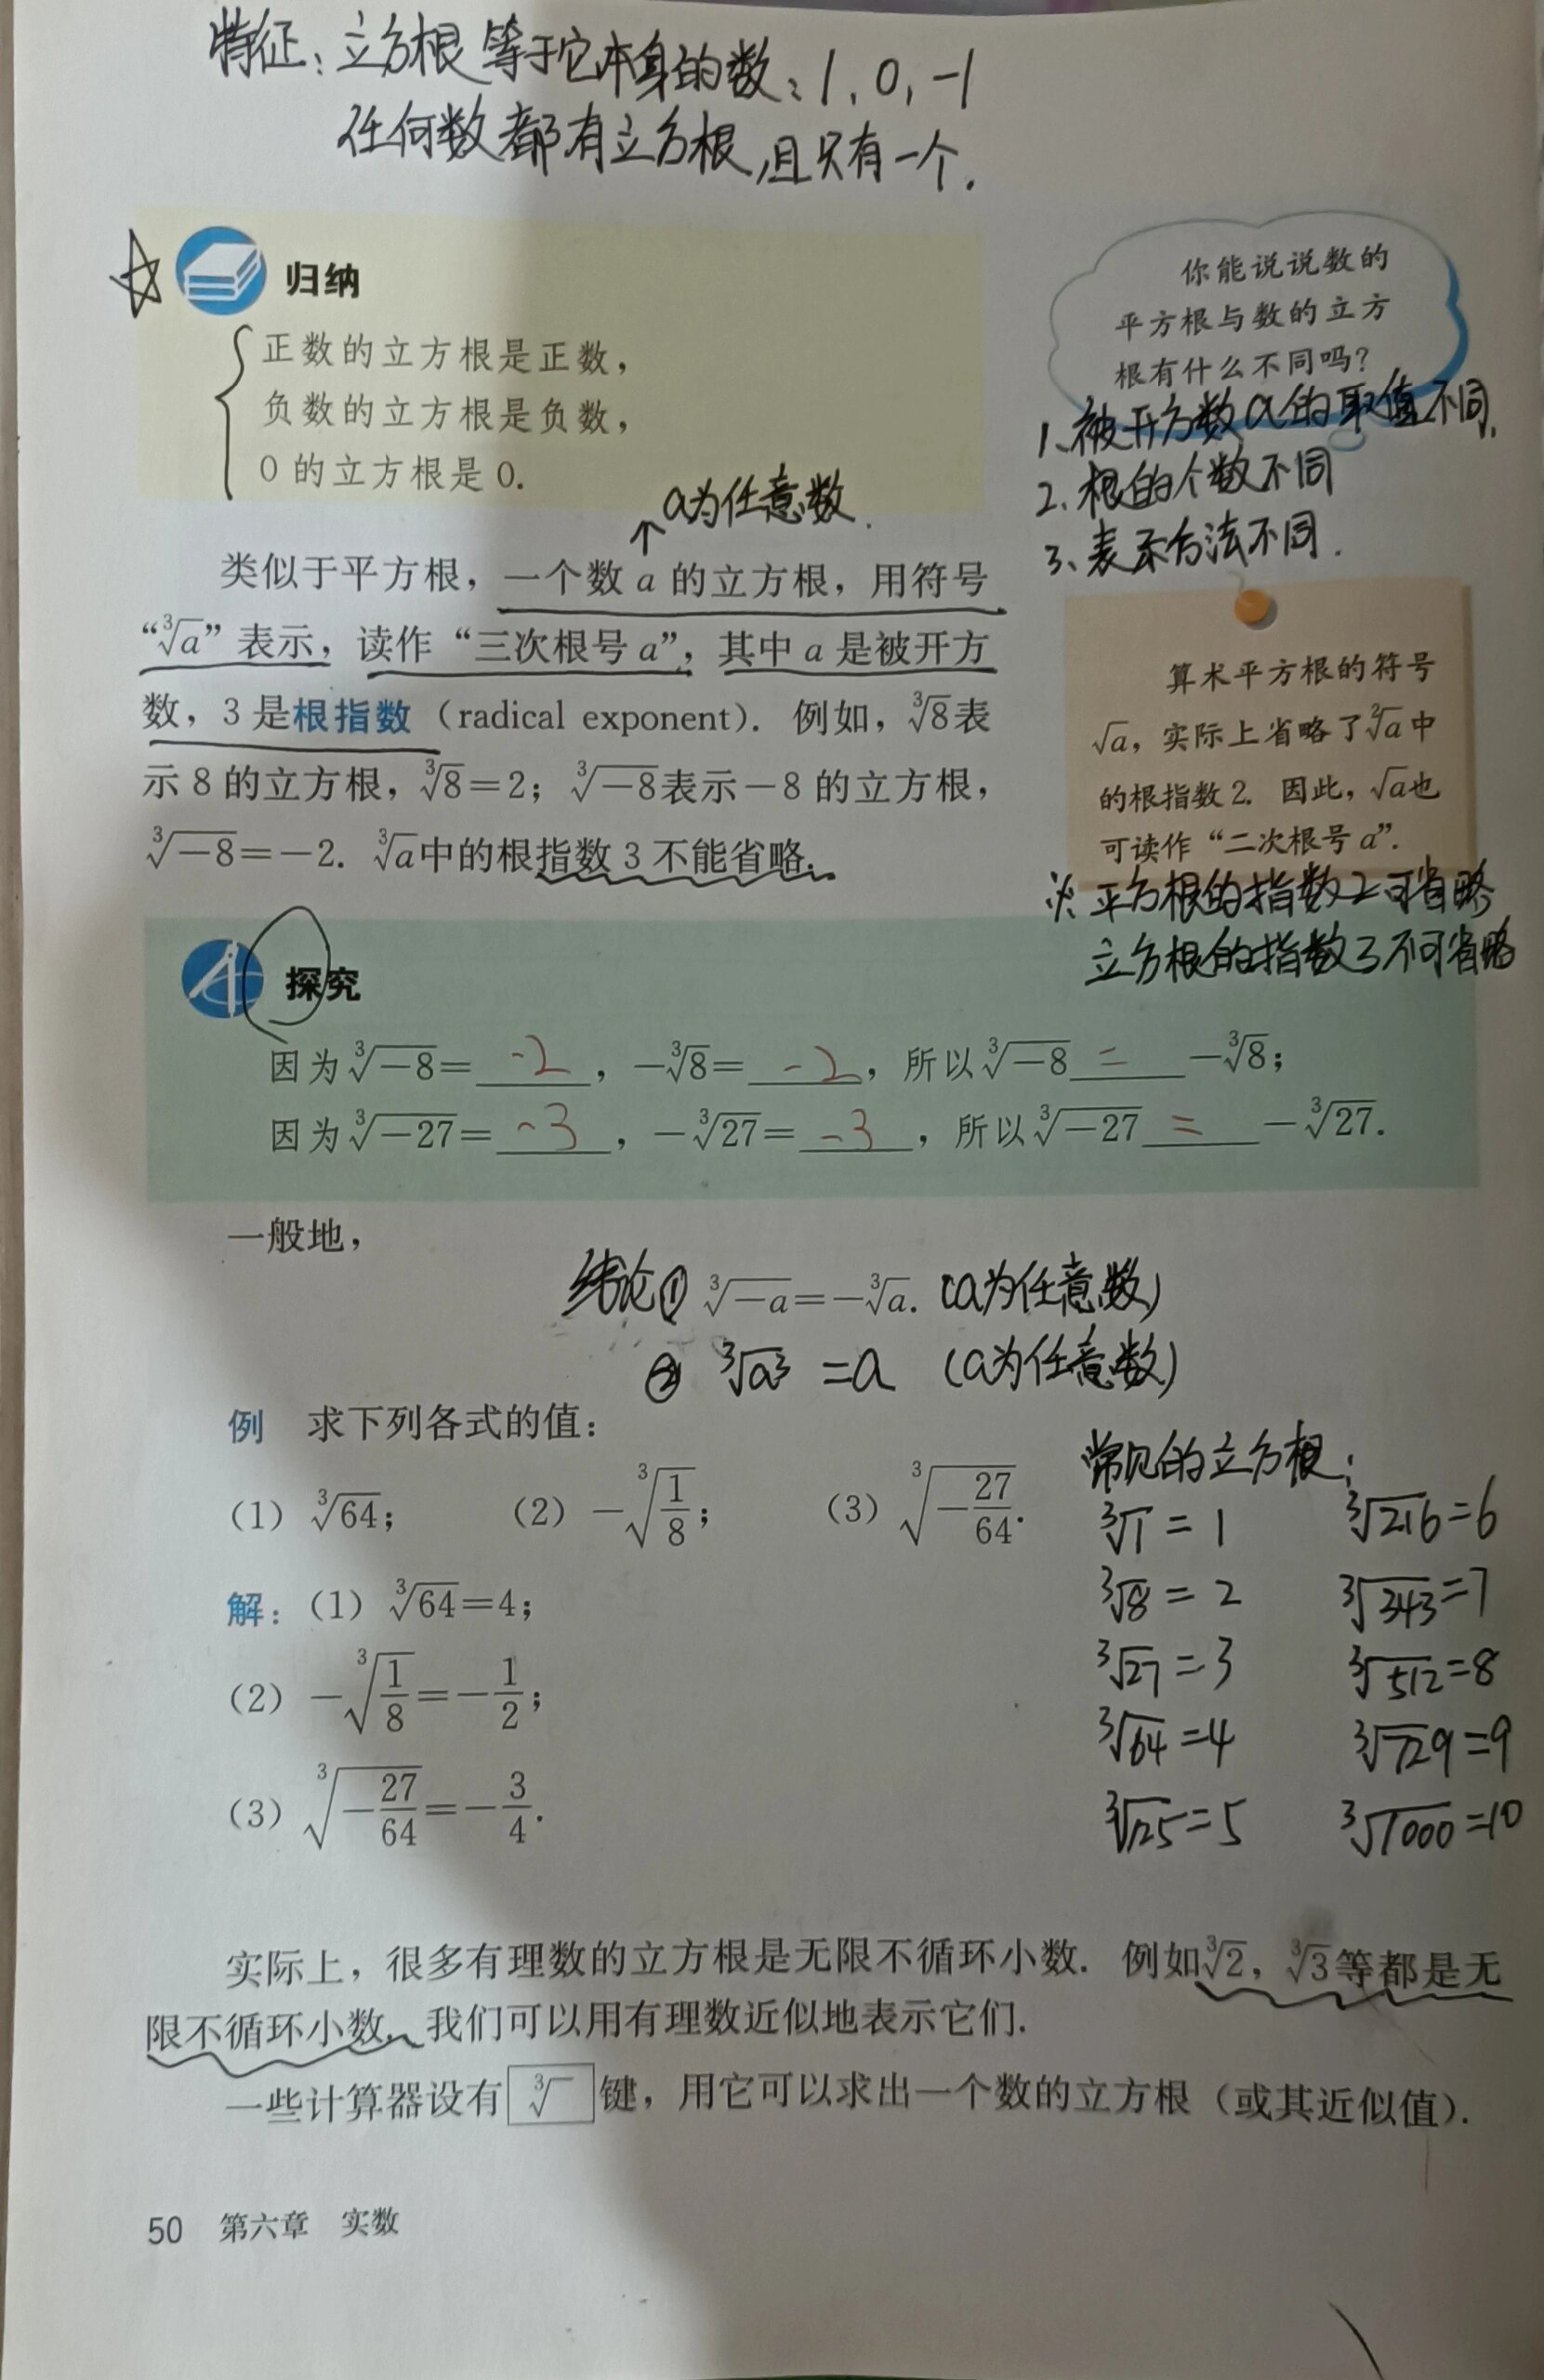 特征:立方根等于它本身的数:1,0,-1
任何数都有立方根,且只有一个.
归纳
正数的立方根是正数,
负数的立方根是负数,
0的立方根是0.
你能说说数的
平方根与数的立方
根有什么不同吗?
1、被开方数a的取值不同,
2、根的个数不同
3、表示方法不同.
↑a为任意数.
类似于平方根,一个数a的立方根,用符号
“∛a”表示,读作“三次根号a”,其中a是被开方
数,3是根指数(radical exponent). 例如,∛8表
示8的立方根,∛8=2;∛-8表示-8的立方根,
∛-8=-2. ∛a中的根指数3不能省略.
算术平方根的符号
√a,实际上省略了²√a中
的根指数2. 因此,√a也
可读作“二次根号a”.
※平方根的指数2可省略
立方根的指数3不可省略
探究
因为∛-8=-2,-∛8=-2,所以∛-8=-∛8;
因为∛-27=-3,-∛27=-3,所以∛-27=-∛27.
一般地,
结论① ∛-a=-∛a. (a为任意数)
② ∛a³=a (a为任意数)
例 求下列各式的值:
(1) ∛64; (2) -∛(1/8); (3) ∛(-27/64).
解:(1) ∛64=4;
(2) -∛(1/8)=-1/2;
(3) ∛(-27/64)=-3/4.
常见的立方根:
∛1=1 ∛216=6
∛8=2 ∛343=7
∛27=3 ∛512=8
∛64=4 ∛729=9
∛125=5 ∛1000=10
实际上,很多有理数的立方根是无限不循环小数. 例如∛2,∛3等都是无
限不循环小数. 我们可以用有理数近似地表示它们.
一些计算器设有∛键,用它可以求出一个数的立方根(或其近似值).
50 第六章 实数